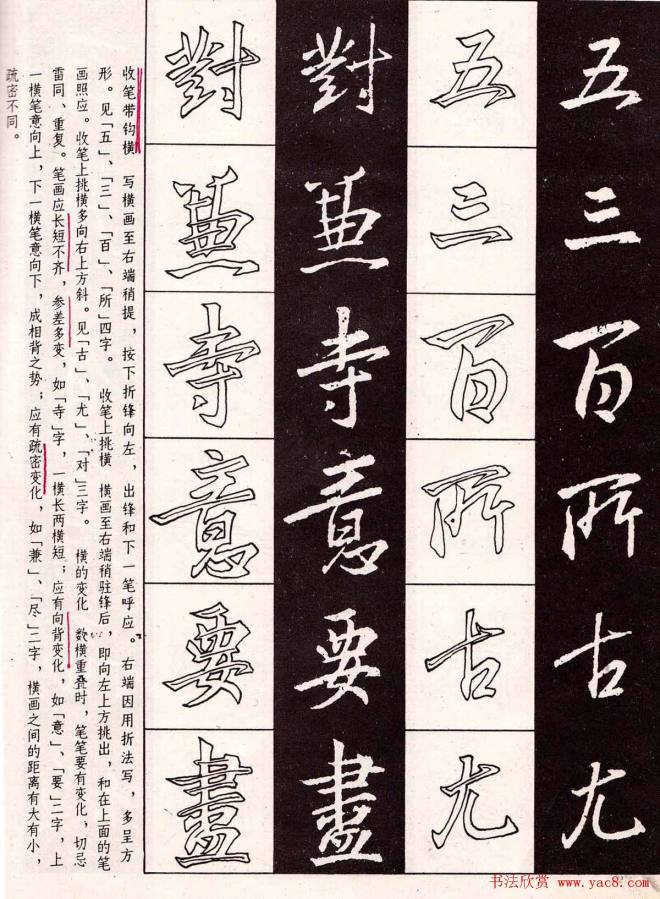 五三百所古尤
五三百所古尤
對兼寺意要盡
對兼寺意要盡
收笔带钩横　写横画至右端稍提，按下折锋向左，出锋和下一笔呼应。右端因用折法写，多呈方
形。见「五」、「三」、「百」、「所」四字。　收笔上挑横　横画至右端稍驻锋后，即向左上方挑出，和在上面的笔
画照应。收笔上挑横多向右上方斜。见「古」、「尤」、「对」三字。　横的变化　数横重叠时，笔笔要有变化，切忌
雷同、重复。笔画应长短不齐，参差多变，如「寺」字，一横长两横短；应有向背变化，如「意」、「要」二字，上
一横笔意向上，下一横笔意向下，成相背之势；应有疏密变化，如「兼」、「尽」二字，横画之间的距离有大有小，
疏密不同。
书法欣赏 www.yac8.com